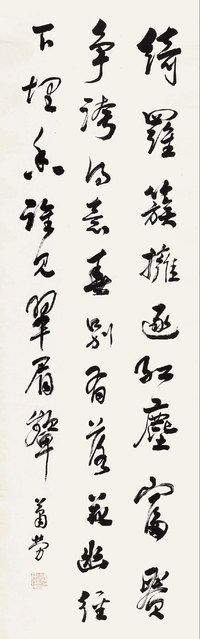 綺羅簇擁逐紅塵富貴
爭誇得意春別有落花幽徑
下埋香誰見翠眉顰
蕭勞